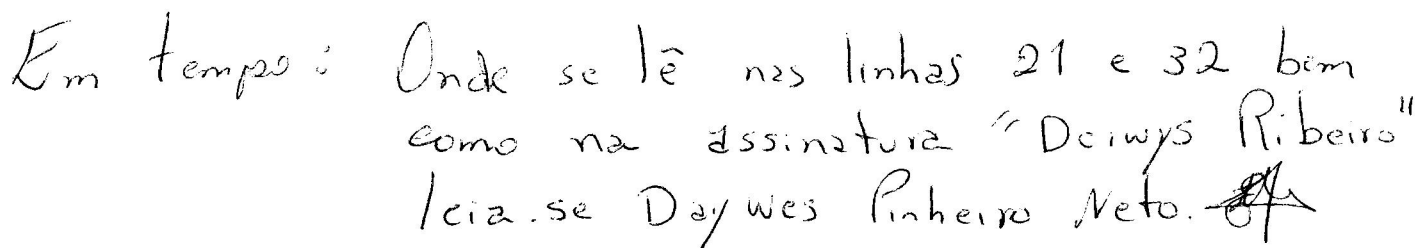 Em tempo: Onde se lê nas linhas 21 e 32 bem
como na assinatura "Deiwys Ribeiro"
leia.se Daywes Pinheiro Neto.